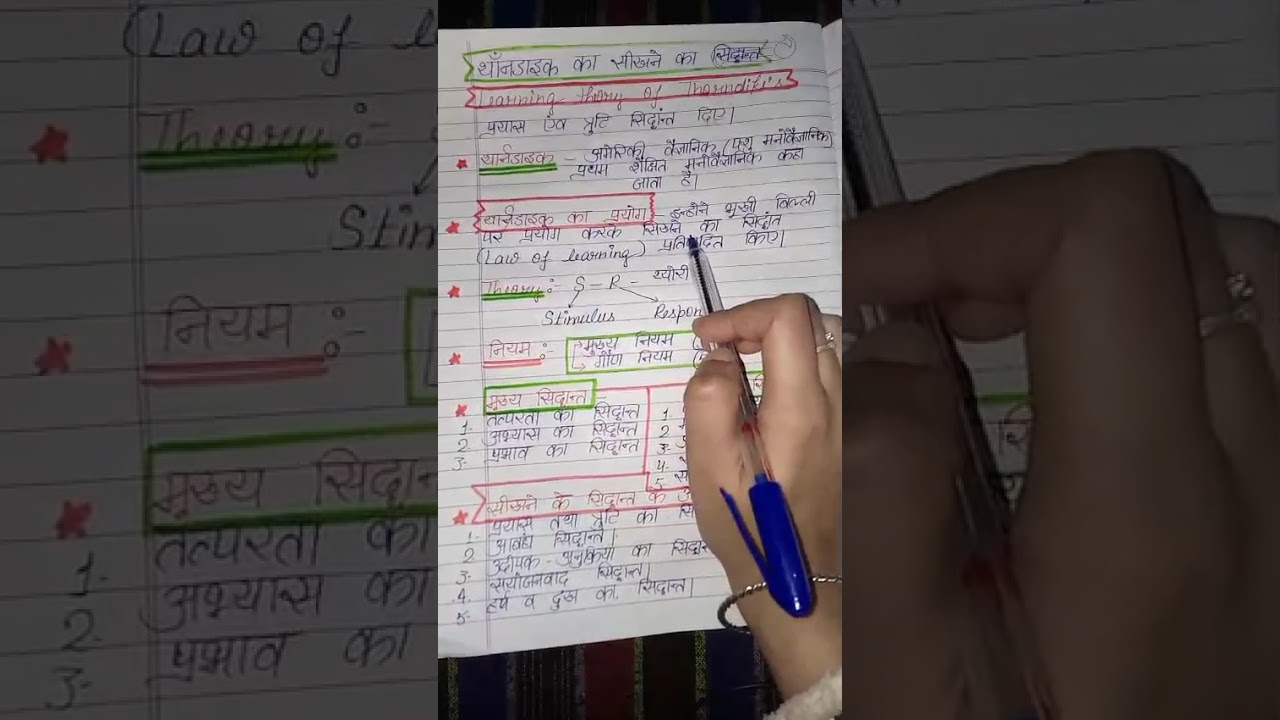 थॉनडाइक का सीखने का सिद्धान्त
Learning theory of Tharndik's
प्रयास एंव त्रुटि सिद्धांत दिए।
थार्नडाइक - अमेरिकी वैज्ञानिक (पशु मनोवैज्ञानिक)
प्रथम शैक्षित मनोवैज्ञानिक कहा
जाता है।
थार्नडाइक का प्रयोग इन्होने भूखी बिल्ली
पर प्रयोग करके सिखने का सिद्धांत
(Law of learning) प्रतिपादित किए।
Theory :- S - R - थ्योरी
Stimulus Respon
नियम :- मुख्य नियम
→ गौण नियम
मुख्य सिद्धान्त
1- तत्परता का सिद्धान्त
2 अभ्यास का सिद्धान्त
3- प्रभाव का सिद्धान्त
1.
2
3-
4.
5
सीखने के सिद्धान्त के
1- प्रयास तथा त्रुटि का
2 आबंध सिद्धान्त।
3- उद्दीपक-अनुक्रिया का सिद्धान्
4. संयोजनवाद सिद्धान्त।
5- हर्ष व दुख का सिद्धान्त।